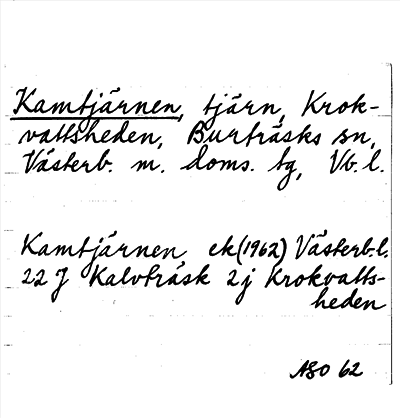 Kamtjärnen, tjärn, Krok-
vattsheden, Burträsks sn,
Västerb. m. doms. tg, Vb. l.
Kamtjärnen ek (1962) Västerb. l.
22 J Kalvträsk 2 j Krokvatts-
heden
ASO 62